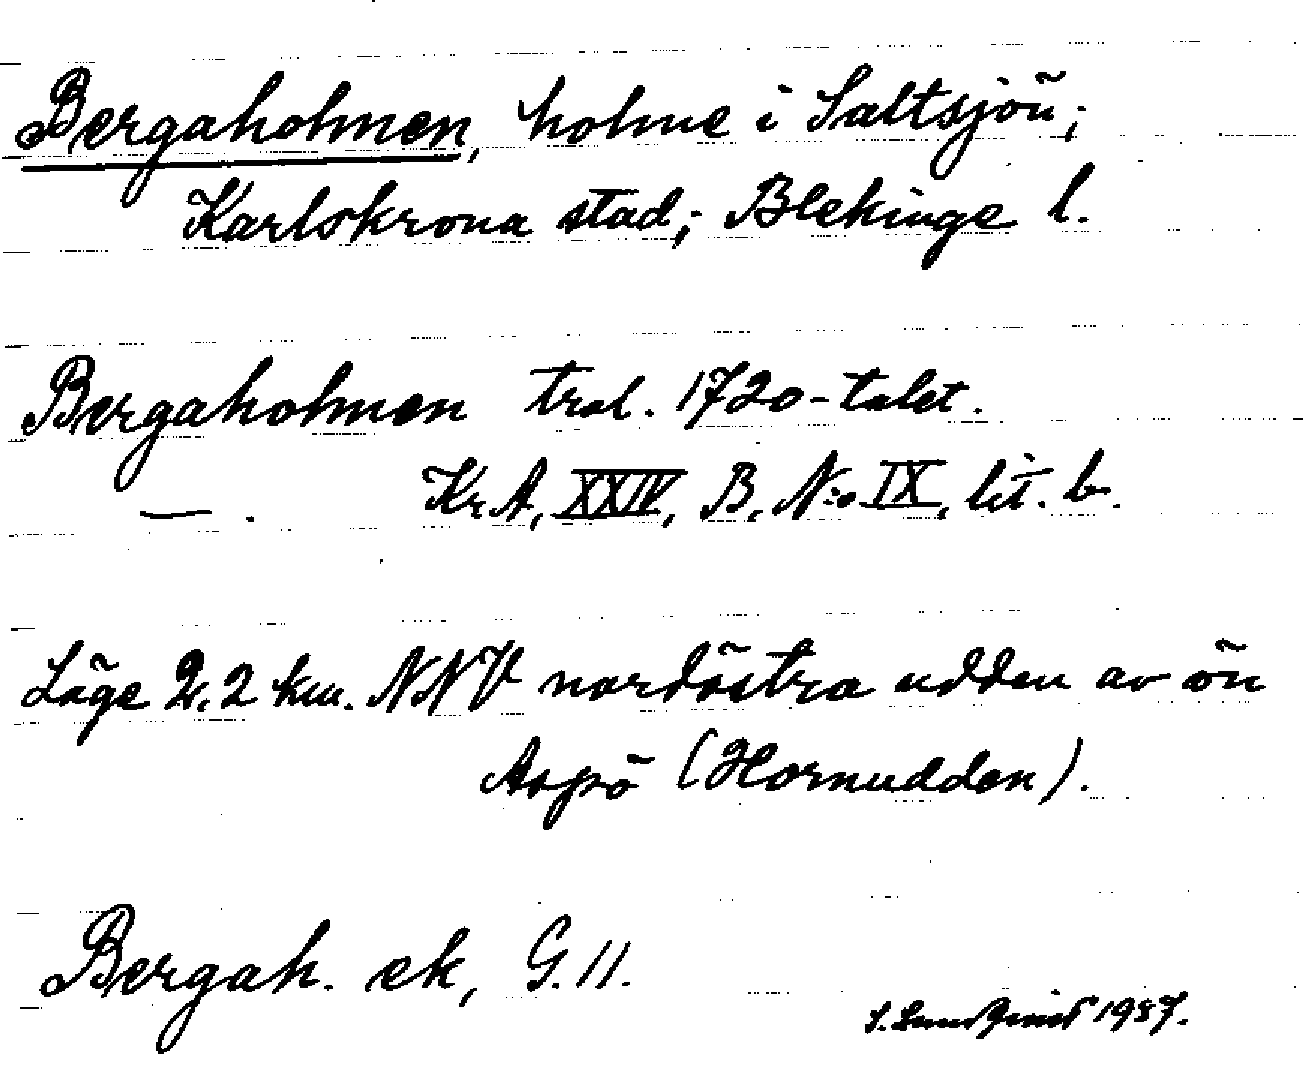 Bergaholmen, holme i Saltsjön;
Karlskrona stad; Blekinge l.
Bergaholmen trol. 1720-talet.
— . Kr.A, XXIV, B, N:o IX, lit. b.
Läge 2,2 km. NNV nordöstra udden av ön
Aspö (Hornudden).
Bergah. ek, G. 11.
Lundqvist 1937.